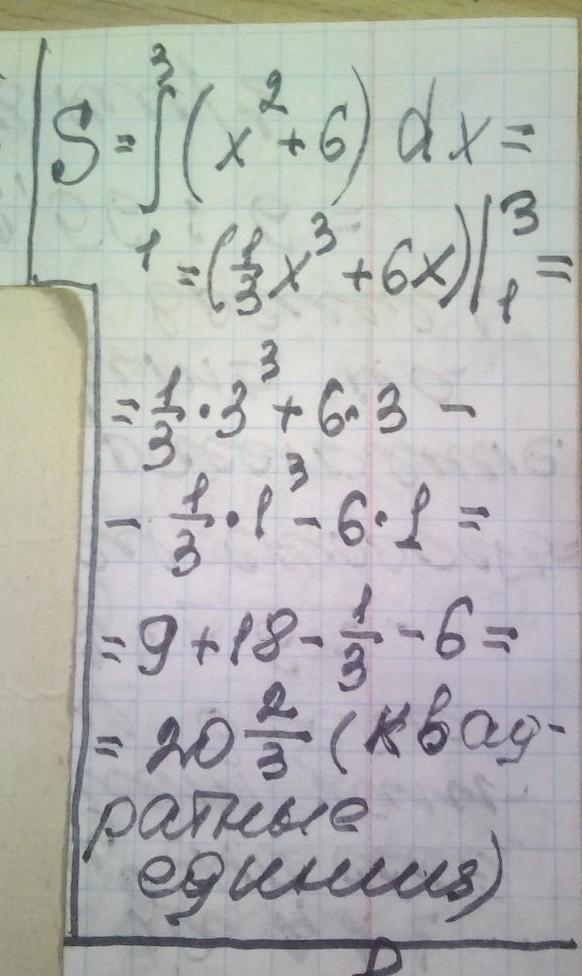 S = ∫₁³ (x² + 6) dx =
= (1/3 x³ + 6x) |₁³ =
= 1/3 · 3³ + 6 · 3 −
− 1/3 · 1³ − 6 · 1 =
= 9 + 18 − 1/3 − 6 =
= 20 2/3 (квад-
ратные
единицы)